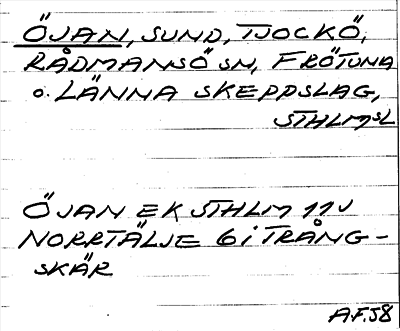 ÖJAN, SUND, TJOCKÖ,
RÅDMANSÖ SN, FRÖTUNA
o. LÄNNA SKEPPSLAG,
STHLMSL
ÖJAN EK STHLM 11J
NORRTÄLJE 6 i TRÅNG-
SKÄR
A.F. 58